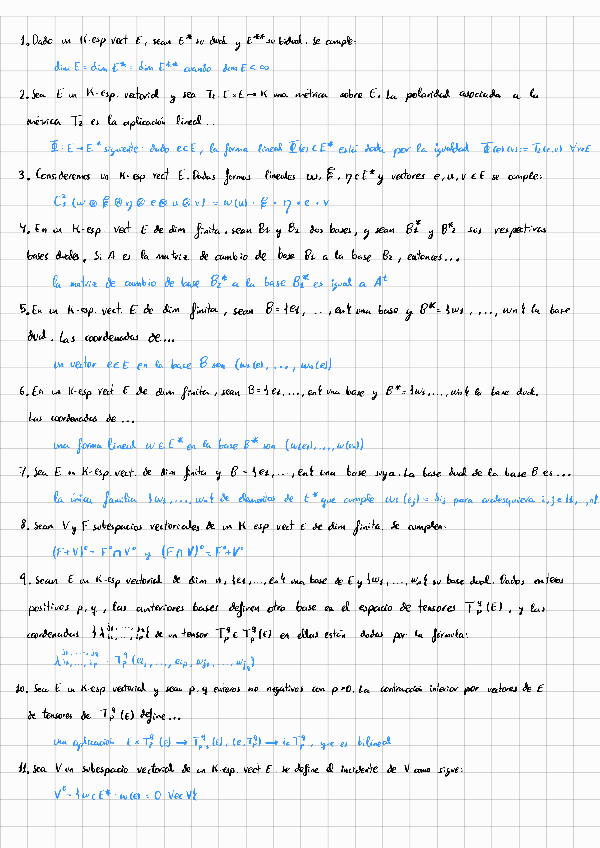 1. Dado un K-esp vect E, sean E* su dual y E** su bidual. Se cumple:
dim E = dim E* = dim E** cuando dim E < ∞
2. Sea E un K-esp. vectorial y sea T₂: E×E → K una métrica sobre E. La polaridad asociada a la
métrica T₂ es la aplicación lineal...
Φ: E → E* siguiente: dado e∈E, la forma lineal Φ(e)∈E* está dada por la igualdad Φ(e)(v) := T₂(e,v) ∀v∈E
3. Consideremos un K-esp vect E. Dadas formas lineales ω, ξ, η∈E* y vectores e, u, v∈E se cumple:
(ω ⊗ ξ ⊗ η ⊗ e ⊗ u ⊗ v) = ω(u) · ξ · η · e · v
4. En un K-esp. vect E de dim finita, sean B₁ y B₂ dos bases, y sean B₁* y B₂* sus respectivas
bases duales. Si A es la matriz de cambio de base B₁ a la base B₂, entonces...
la matriz de cambio de base B₂* a la base B₁* es igual a Aᵗ
5. En un K-esp. vect. E de dim finita, sean B={e₁, ..., eₙ} una base y B*={ω₁, ..., ωₙ} la base
dual. Las coordenadas de...
un vector e∈E en la base B son (ω₁(e), ..., ωₙ(e))
6. En un K-esp vect E de dim finita, sean B={e₁, ..., eₙ} una base y B*={ω₁, ..., ωₙ} la base dual.
Las coordenadas de...
una forma lineal ω∈E* en la base B* son (ω(e₁), ..., ω(eₙ))
7. Sea E un K-esp. vect. de dim finita y B={e₁, ..., eₙ} una base suya. La base dual de la base B es...
la única familia {ω₁, ..., ωₙ} de elementos de E* que cumple ωᵢ(eⱼ) = δᵢⱼ para cualesquiera i,j∈{1,...,n}
8. Sean V y F subespacios vectoriales de un K esp vect E de dim finita. Se cumplen:
(F+V)⁰ = F⁰∩V⁰ y (F∩V)⁰ = F⁰+V⁰
9. Sean E un K-esp vectorial de dim n, {e₁, ..., eₙ} una base de E y {ω₁, ..., ωₙ} su base dual. Dados enteros
positivos p, q, las anteriores bases definen otra base en el espacio de tensores T_p^q(E), y las
coordenadas de un tensor T_p^q∈T_p^q(E) en ellas están dadas por la fórmula:
λ = T_p^q(e_{i₁}, ..., e_{ip}, ω_{j₁}, ..., ω_{jq})
10. Sea E un K-esp vectorial y sean p, q enteros no negativos con p>0. La contracción interior por vectores de E
de tensores de T_p^q(E) define...
una aplicación E×T_p^q(E) → (E), (e,T_p^q) → T_p^q, que es bilineal
11. Sea V un subespacio vectorial de un K-esp. vect E. se define el incidente de V como sigue:
V⁰ = {ω∈E* : ω(e) = 0 ∀e∈V}